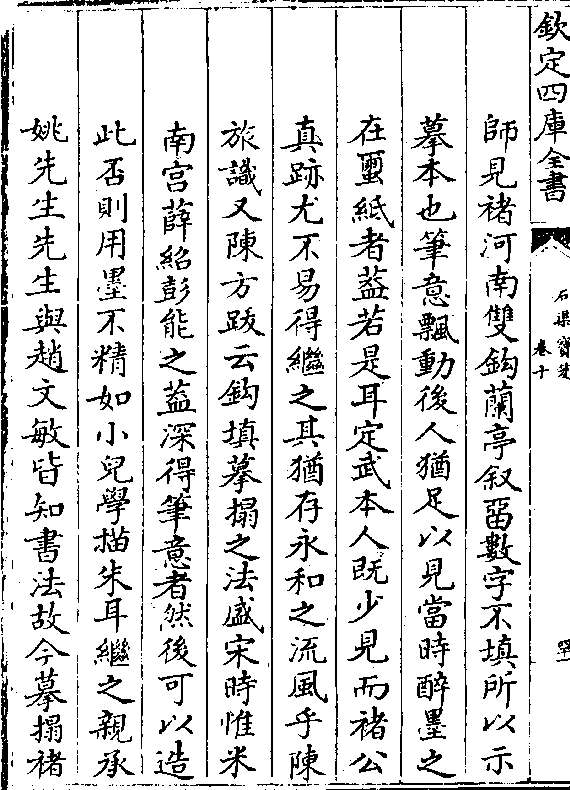 欽定四庫全書
石渠寳笈
卷十
師見褚河南雙鈎蘭亭叙畱數字不填所以示
摹本也筆意飄動後人猶足以見當時醉墨之
在璽紙者葢若是耳定武本人既少見而褚公
真跡尤不易得繼之其猶存永和之流風乎陳
旅識又陳方跋云鈎填摹搨之法盛宋時惟米
南宫薛紹彭能之葢深得筆意者然後可以造
此否則用墨不精如小兒學描朱耳繼之親承
姚先生先生與趙文敏皆知書法故今摹搨褚